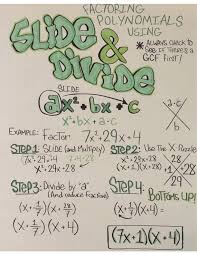 FACTORING
POLYNOMIALS
USING
SLIDE
&
DIVIDE
* ALWAYS CHECK TO
SEE IF THERE'S A
GCF FIRST!
SLIDE
ax²+bx+c
x²+bx+a·c
a·c
b
EXAMPLE: Factor 7x²+29x+4
STEP 1: SLIDE (and Multiply)
7·4=28
x²+29x+28
STEP 2: Use The X Puzzle
x²+29x+28
(x+1)(x+28)
28
1 28
29
STEP 3: Divide by "a"
(And reduce fractions)
(x+1/7)(x+28/7)
(x+1/7)(x+4)
STEP 4:
BOTTOMS UP!
(x+1/7)(x+4)
(7x+1)(x+4)